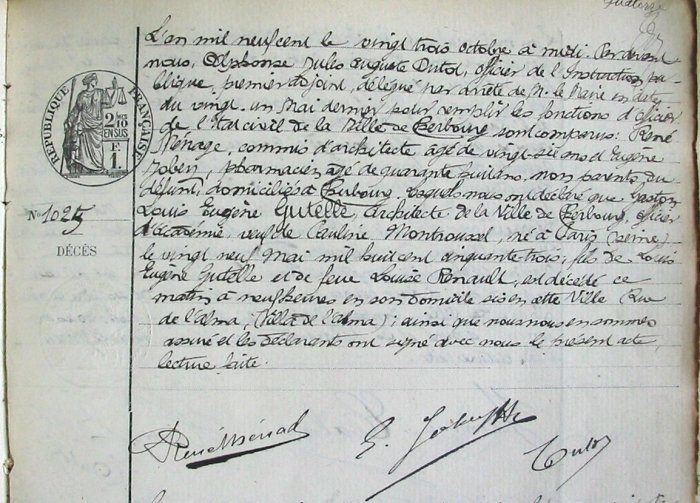 L'an mil neuf cent le vingt trois octobre à midi. Par devant
nous, Alphonse Jules Auguste Dutot, officier de l'Instruction pu-
blique, premier adjoint, délégué par arrêté de M. le Maire en date
du vingt-un Mai dernier pour remplir les fonctions d'officier
de l'Etat civil de la Ville de Cherbourg sont comparus: René
Ménage, commis d'architecte âgé de vingt-six ans et Eugène
pharmacien âgé de quarante huit ans, non parents du
défunt, domiciliés à Cherbourg, lesquels nous ont déclaré que Gaston
Louis Eugène Gutelle, architecte de la Ville de Cherbourg, officier
d'académie, veuf de Pauline Montrouxel, né à Paris (Seine)
le vingt neuf Mai mil huit cent cinquante trois, fils de Louis
Eugène Gutelle et de feue Louise Renault, est décédé ce
matin à neuf heures en son domicile sis en cette Ville Rue
de l'alma, (Villa de l'alma); ainsi que nous nous en sommes
assuré et les déclarants ont signé avec nous le présent acte,
lecture faite.
RÉPUBLIQUE FRANÇAISE
2/10 EN SUS
F. 1
No 1025
DÉCÈS